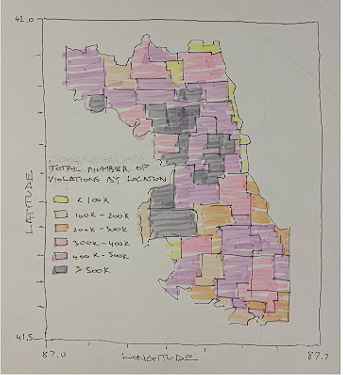 42.0
TOTAL NUMBER OF
VIOLATIONS BY LOCATION
< 100K
100K - 200K
200K - 300K
300K - 400K
400K - 500K
> 500K
LATITUDE
41.5
87.0
LONGITUDE
87.7